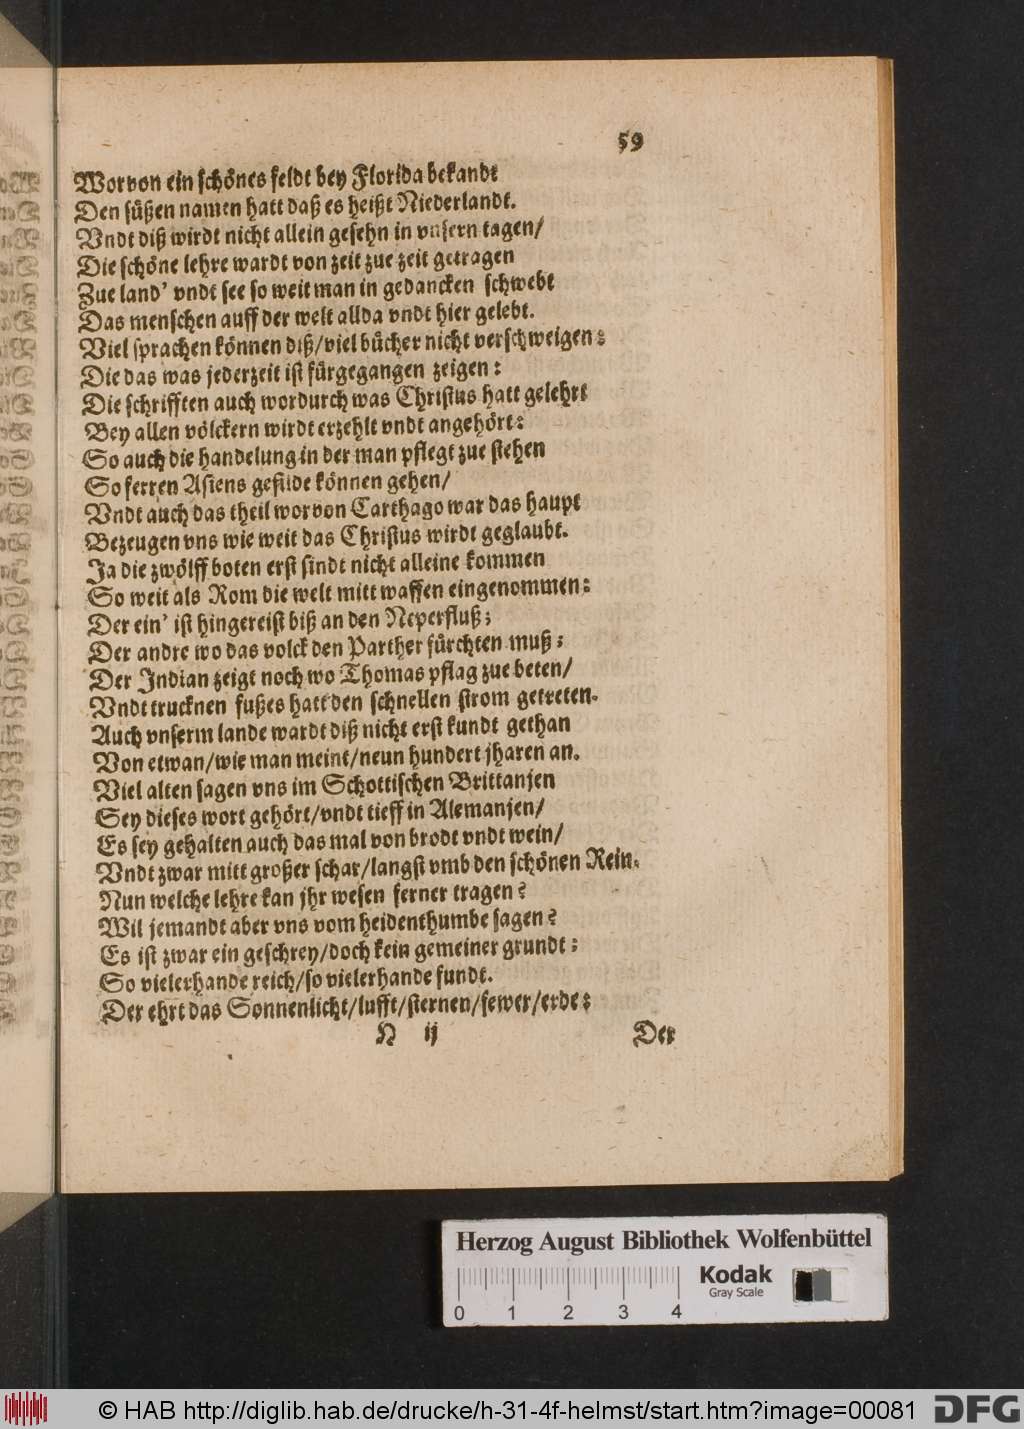 59
Worvon ein schönes feldt bey Florida bekandt
Den süßen namen hatt daß es heißt Niederlandt.
Vndt diß wirdt nicht allein gesehn in vnsern tagen/
Die schöne lehre wardt von zeit zue zeit getragen
Zue land' vndt see so weit man in gedancken schwebt
Das menschen auff der welt allda vndt hier gelebt.
Viel sprachen können diß/viel bücher nicht verschweigen:
Die das was jederzeit ist fürgegangen zeigen:
Die schrifften auch wordurch was Christus hatt gelehrt
Bey allen völckern wirdt erzehlt vndt angehört:
So auch die handelung in der man pflegt zue stehen
So ferren Asiens gefilde können gehen/
Vndt auch das theil worvon Carthago war das haupt
Bezeugen vns wie weit das Christus wirdt geglaubt.
Ja die zwölff boten erst sindt nicht alleine kommen
So weit als Rom die welt mitt waffen eingenommen:
Der ein' ist hingereist biß an den Neperfluß;
Der andre wo das volck den Parther fürchten muß;
Der Indian zeigt noch wo Thomas pflag zue beten/
Vndt trucknen fußes hatt den schnellen strom getreten.
Auch vnserm lande wardt diß nicht erst kundt gethan
Von etwan/wie man meint/neun hundert jharen an.
Viel alten sagen vns im Schottischen Brittanjen
Sey dieses wort gehört/vndt tieff in Alemanjen/
Es sey gehalten auch das mal von brodt vndt wein/
Vndt zwar mitt großer schar/langst vmb den schönen Rein.
Nun welche lehre kan jhr wesen ferner tragen?
Wil jemandt aber vns vom heidenthumbe sagen?
Es ist zwar ein geschrey/doch kein gemeiner grundt:
So vielerhande reich/so vielerhande fundt.
Der ehrt das Sonnenlicht/lufft/sternen/fewer/erde:
H ij Der
Herzog August Bibliothek Wolfenbüttel
Kodak
Gray Scale
0 1 2 3 4
© HAB http://diglib.hab.de/drucke/h-31-4f-helmst/start.htm?image=00081
DFG